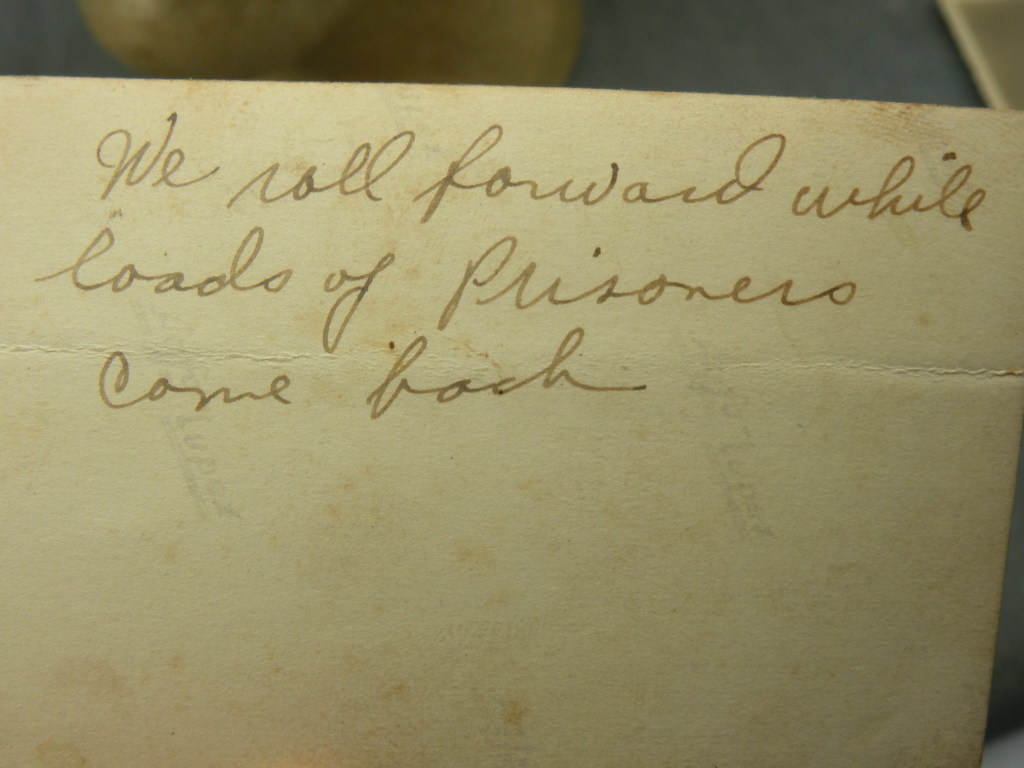 We roll forward while
loads of Prisoners
come back